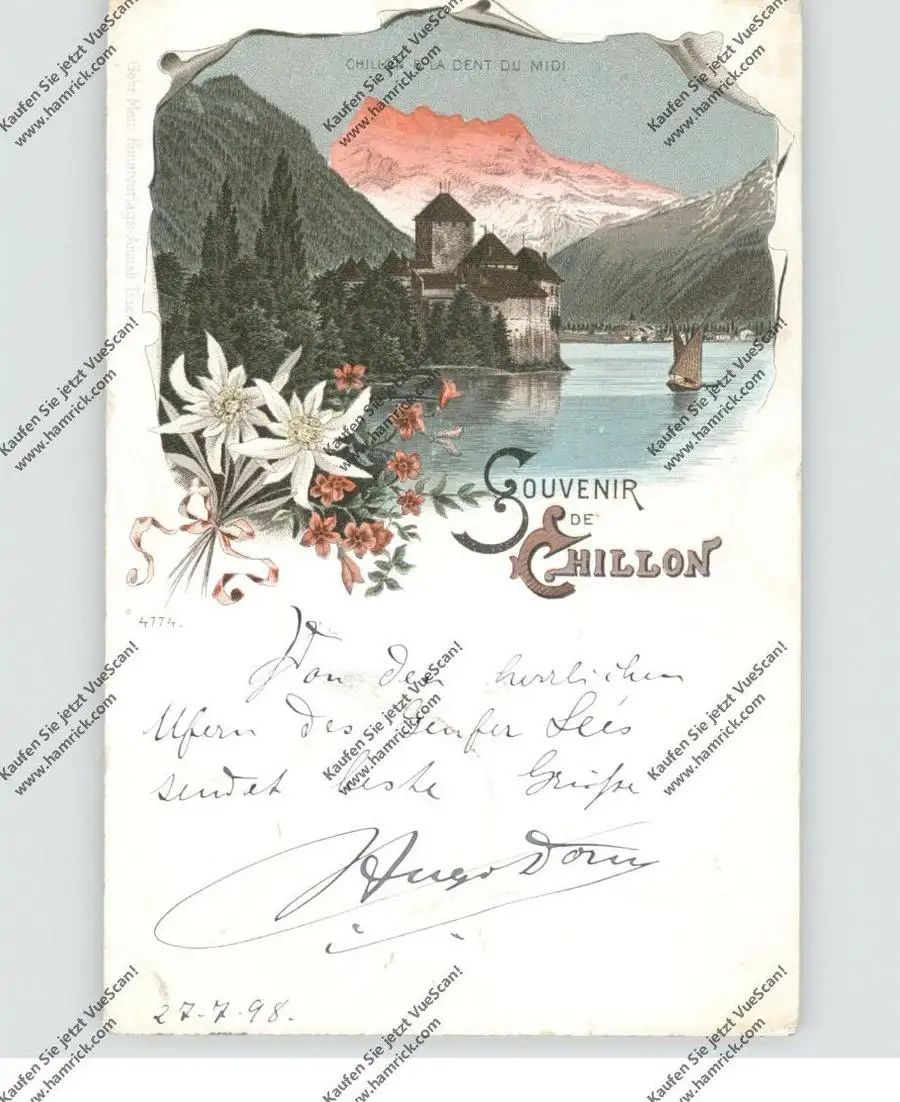 CHILLON & LA DENT DU MIDI.
Gebr. Metz, Kunstverlags-Anstalt
SOUVENIR
DE
CHILLON
4774.
Von den herrlichen
Ufern des Genfer Sees
sendet beste Grüße
Hugo Dorn
27-7-98.
Kaufen Sie jetzt VueScan!
www.hamrick.com